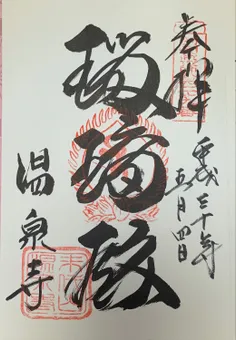 奉拝
平成三十年
五月四日
瑠璃殿
温泉寺